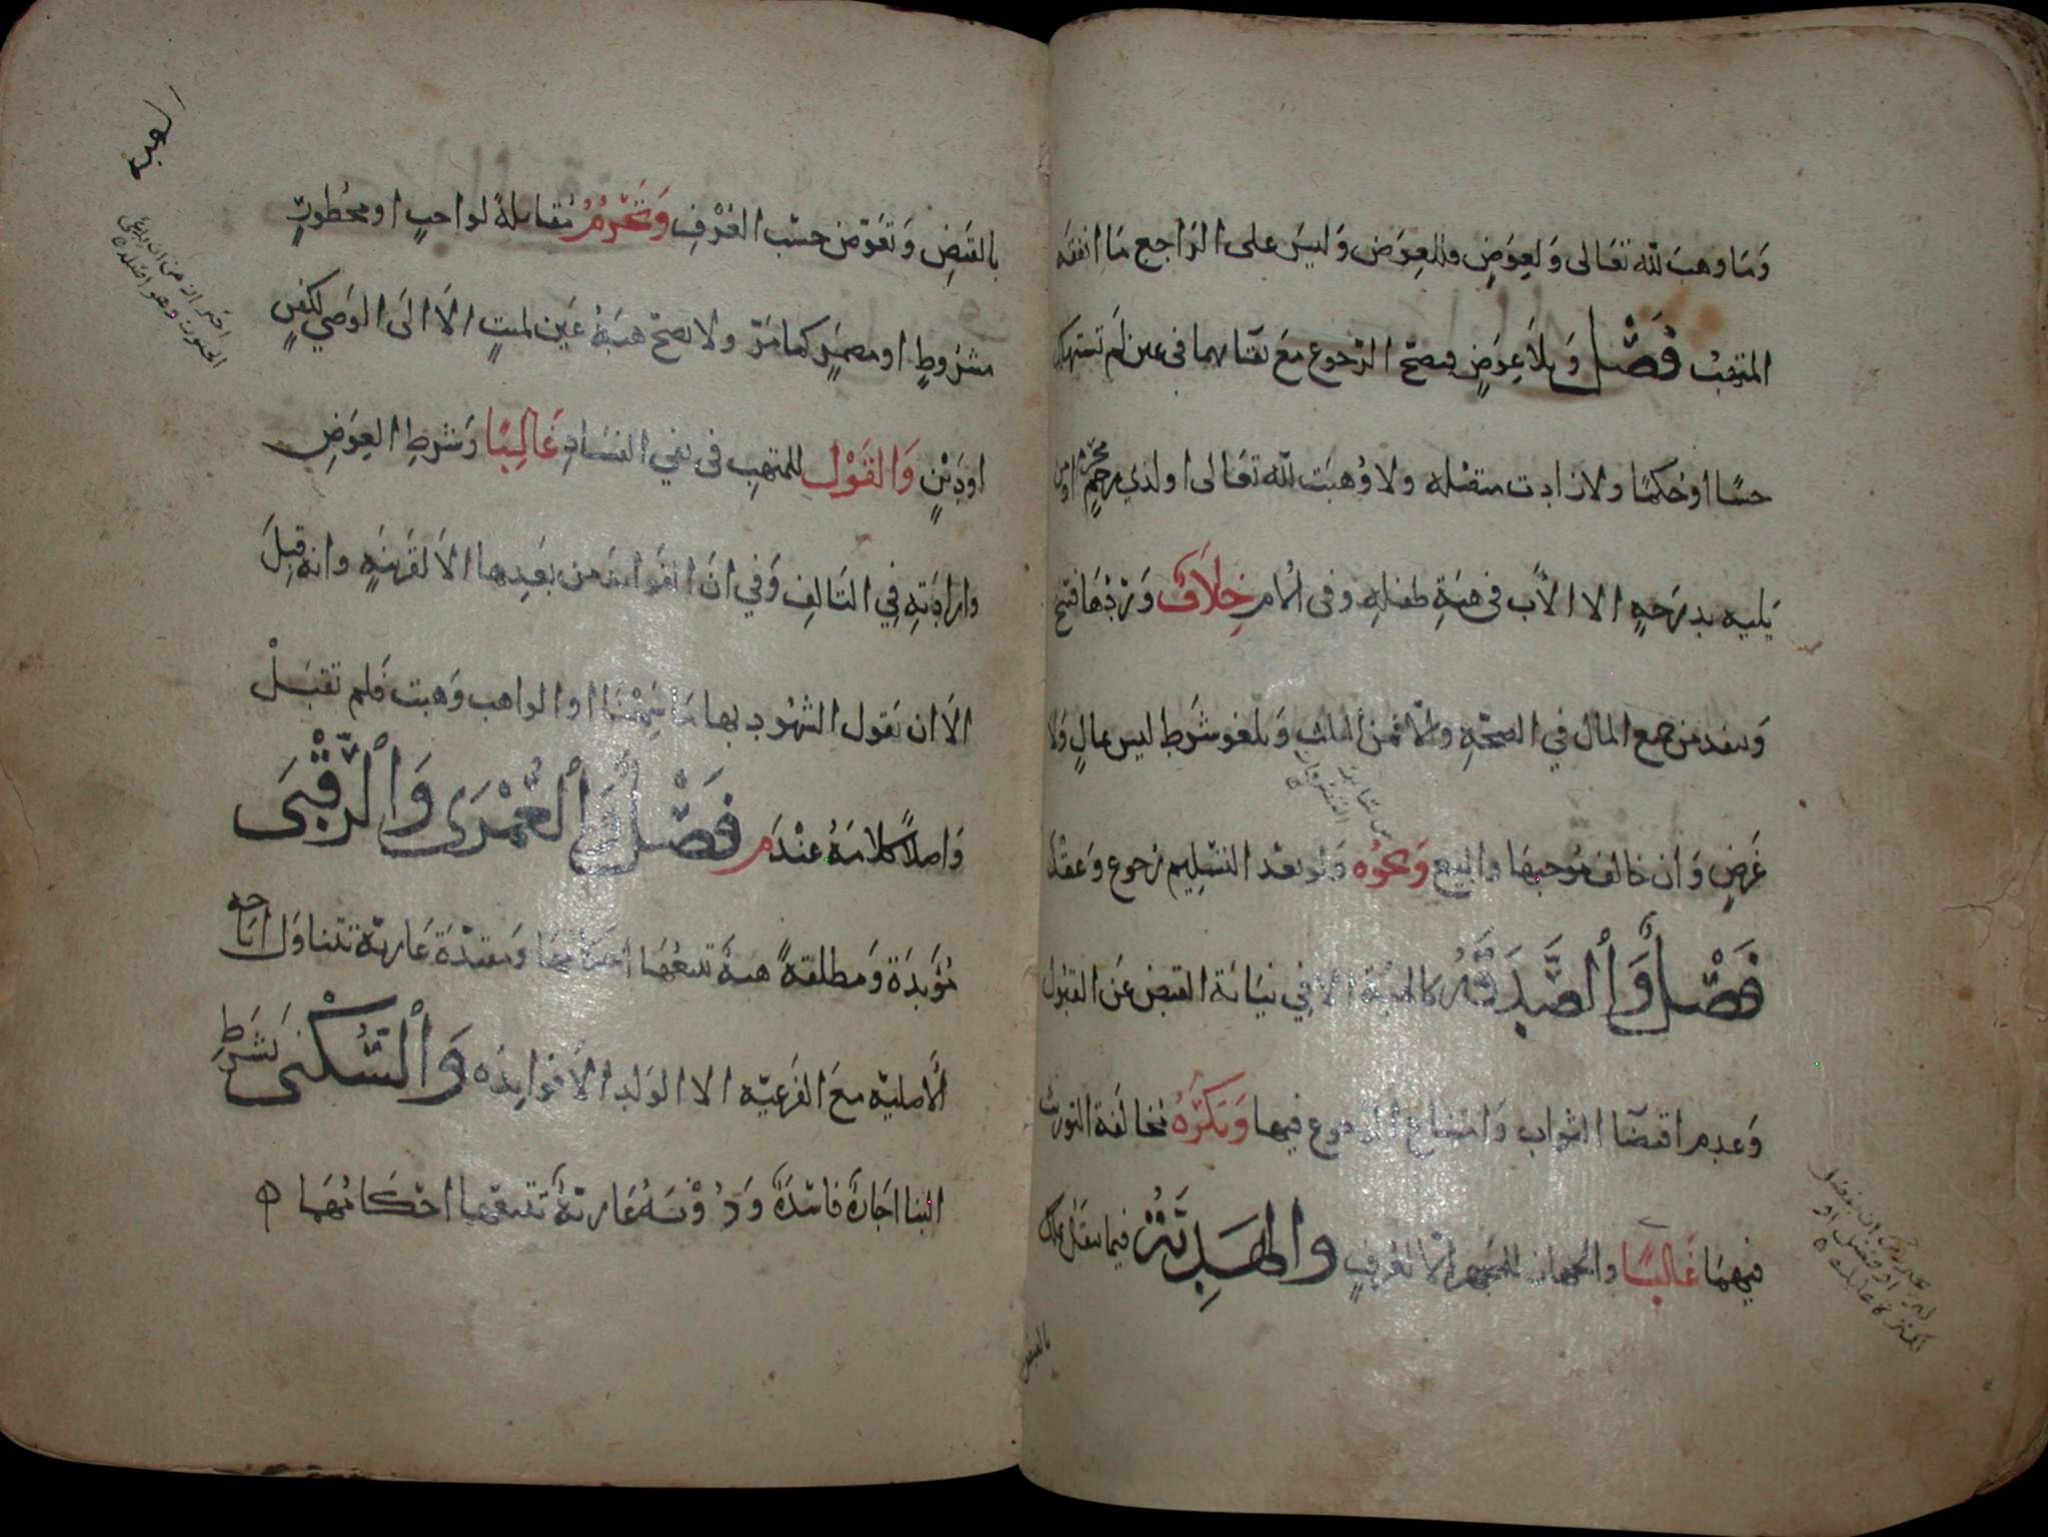 وَمَا وهبَ لله تعَالى وَلعِوَضٍ فللعِوَض وَليسَ على الرَاجع مَا انفقه
المتهِبُ فَصْل وَبلاَ عِوَضٍ فيصحّ الرّجوع مَعَ بقائهما في عين لَم تستهلك
حسًّا اوحُكمًا ولا زادت متصلة ولا وُهبَت لله تعَالى اولذي رحمٍ مَحْرَمٍ اومن
يَليه بدرَجهٍ الا الاَب في هبةِ طفلهِ وفى الام خِلَافٌ وَرَدّهَا فسخ
وَتنفد من جميع المال في الصحّةِ والاّ فمن الثلث وَيلغو شرَط ليس بمالٍ وَلا
غرَضٍ وَان خالف مُوجبهَا والبيع وَنحوُه وَلو بعْد التسْلِيم رجوع وَعقْد
فَصْلٌ وَٱلصَّدَقَةُ كالهبَة الا في نيَابَة القبض عَن القبُول
وَعدم اقتضا الثواب وَامتناع الرجوع فيها وَتكرَهُ مخالفة التوريث
فيهمَا غَالبًا والجهاز للمجهز الاّ لعُرفٍ والهَدِيَّةُ فيما ينقل تملك
بالقبض
الهبة
بالقبَضِ وَتعَوّض حسَب العُرْفِ وَتَحْرُمُ مُقابلةً لواجبٍ اومحظورٍ
مشرُوطٍ اومضمَرٍ كما مَرّ ولا تصحّ هبَةُ عَين لميتٍ الاَ الىَ الوَصي لكفنٍ
اودَيْنٍ وَالقَوْل للمتهِبِ في نفي الفسَادِ غَالِبًا وَشرطِ العِوَضِ
وارادَتهِ فِي التَالِفِ وَفي انَ الفوايدَ من بَعدِها الاَ لقَرينةٍ وانه قبِلَ
الاَ ان يَقول الشهُود بها مَا سَمِعْنَا او الواهب وَهبت فَلم تقبَلْ
وَاصلاً كلامَهُ عنْدَم فَصْلٌ وَٱلعُمْرَى وَٱلرُّقْبَى
مُؤبَدَة وَمطلقهً هبةً تتبعُهَا احكامهَا وَمقيَدَة عَاريّة تتناوَل اباحه
الاصليّه معَ الفَرعيّه الا الوَلد الاَ فوايدَه وَٱلسُّكنى بشرط
البنا اجَارةً فاسدَةً وَدُوْنَهُ عَاريّةٌ تتبعَها احْكَامُهَا